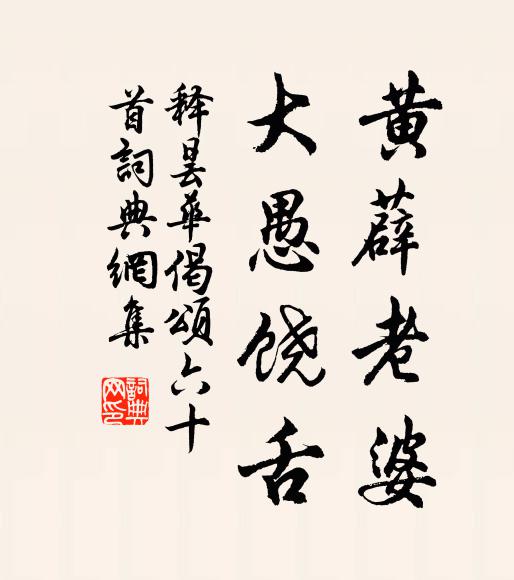 黄薜老婆
大愚饶舌
释昙华偈頌六十
首詞典網集
詞典
网印